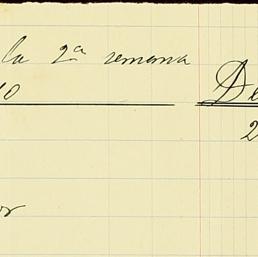 la 2ª semana
10
De
2
or